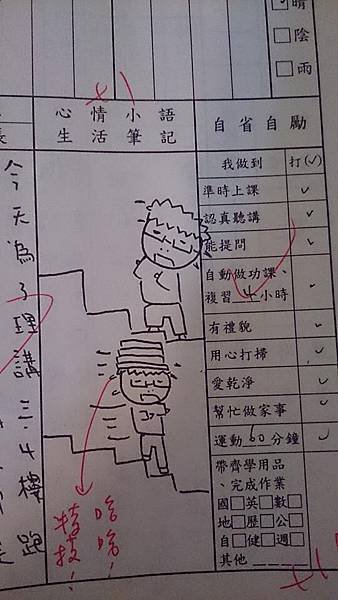 晴
陰
雨
+1
心情小語
生活筆記
自省自勵
長
今天為了理講三.4樓跑
哈哈!
特技!
我做到 打(✓)
準時上課 ✓
認真聽講 ✓
能提問 ✓
自動做功課、
複習 小時 ✓
有禮貌 ✓
用心打掃 ✓
愛乾淨 ✓
幫忙做家事 ✓
運動60分鐘 ✓
帶齊學用品
、完成作業
國□英□數□
地□歷□公□
自□健□週□
其他
+1